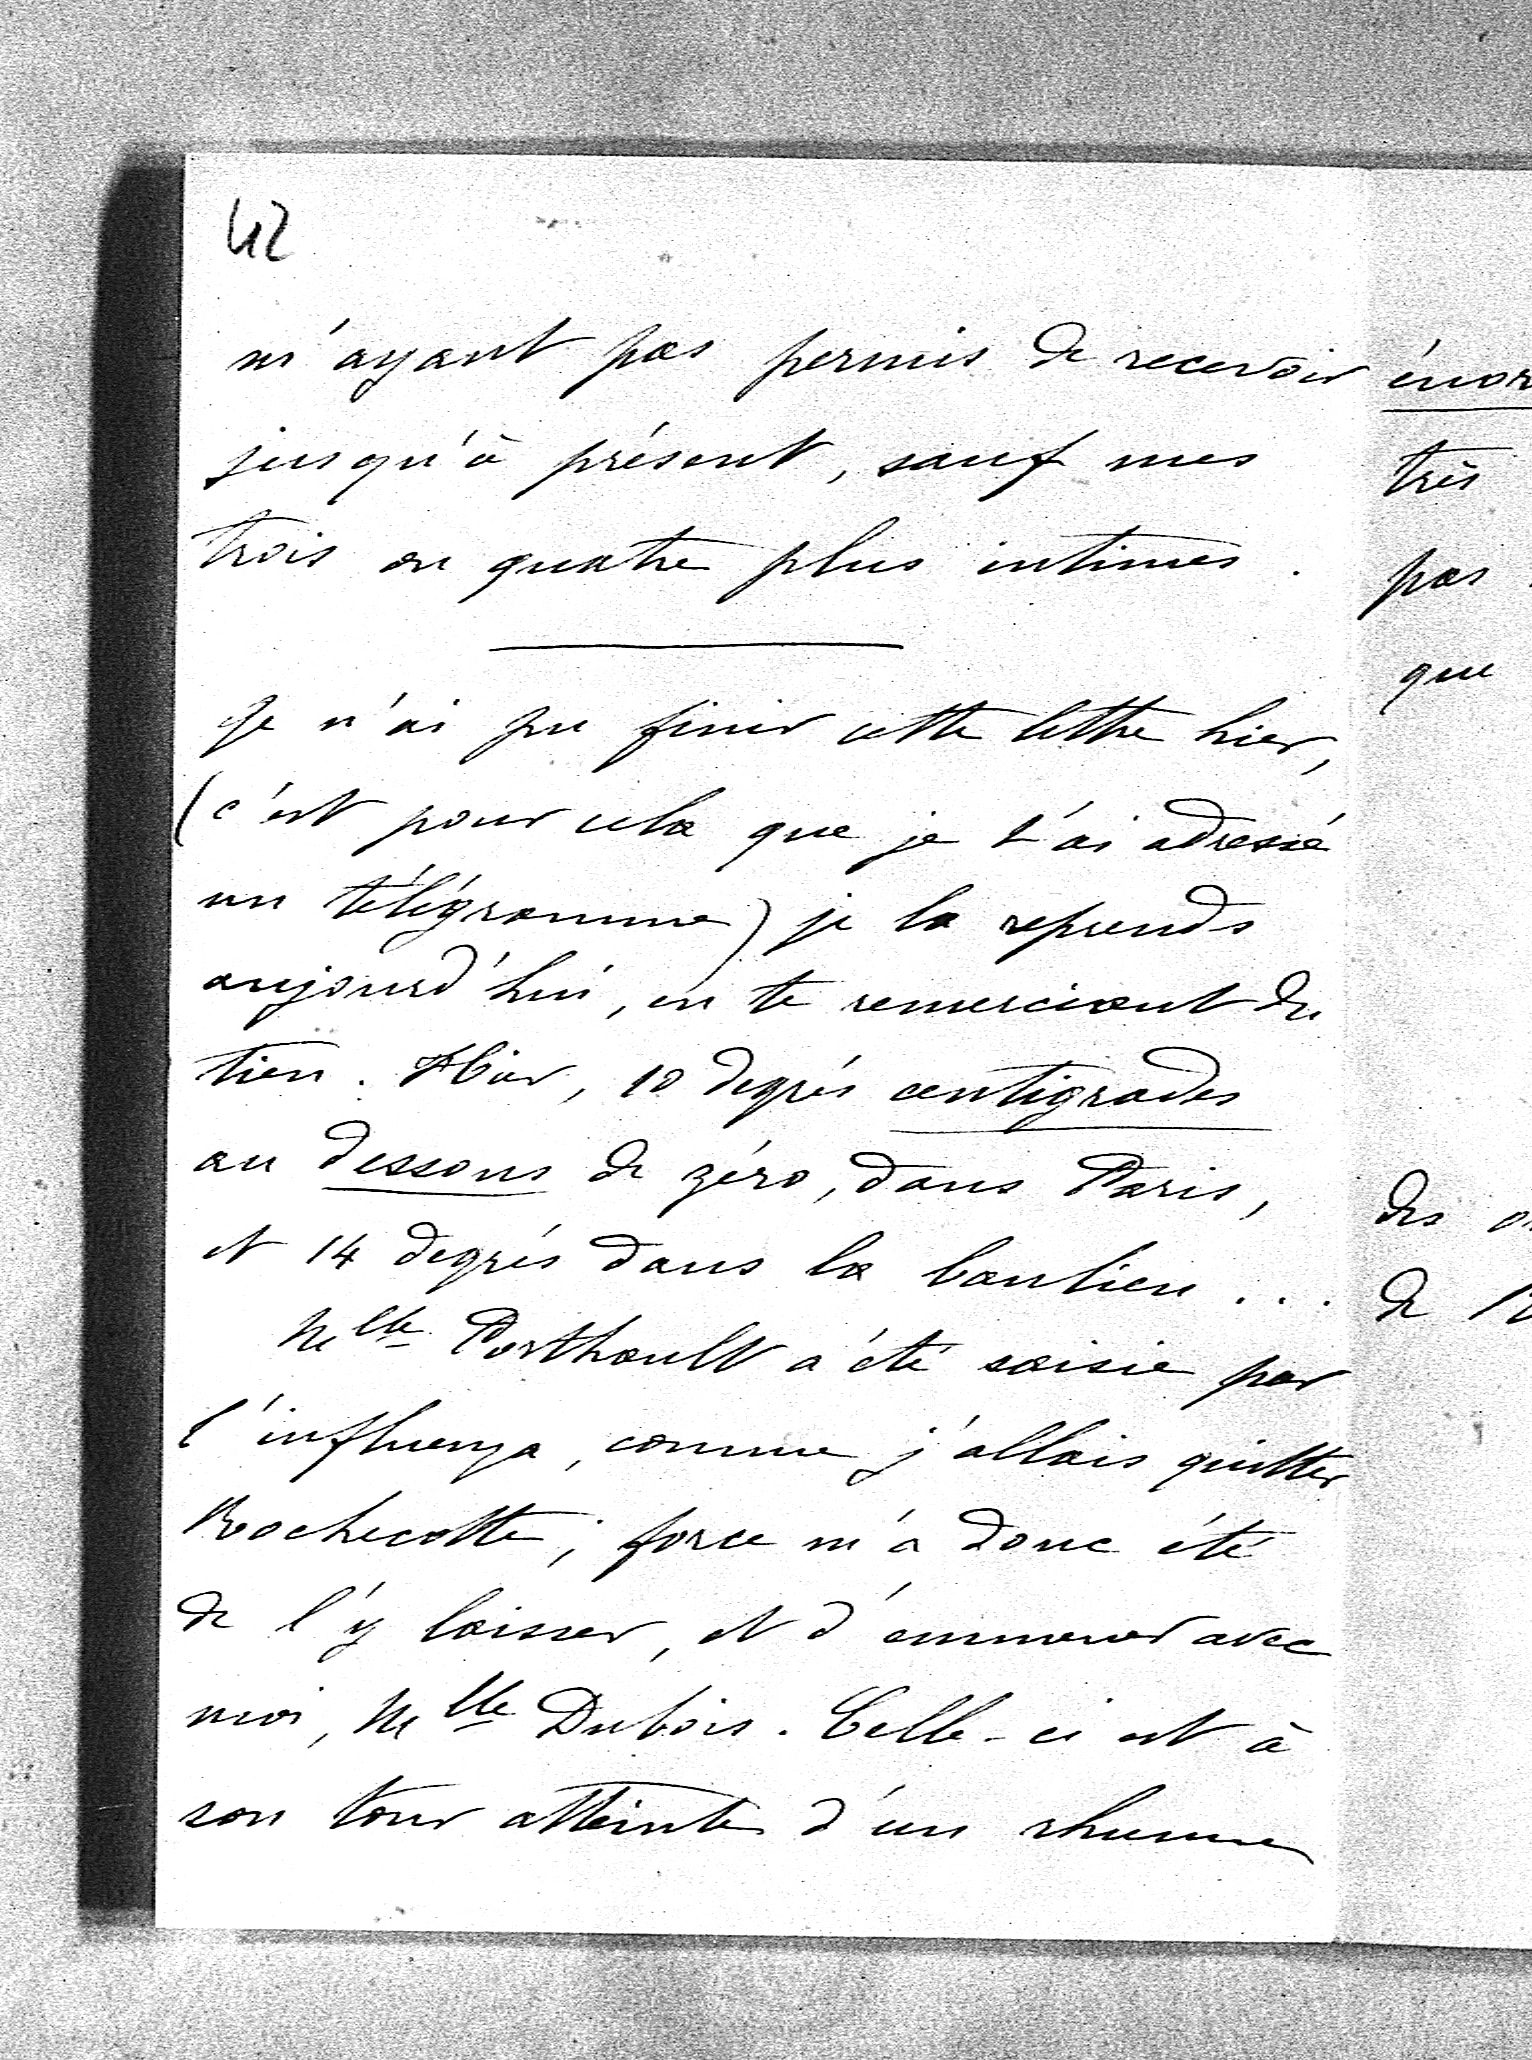 42
m'ayant pas permis de recevoir
jusqu'à présent, sauf mes
trois ou quatre plus intimes.
Je n'ai pu finir cette lettre hier,
(c'est pour cela que je t'ai adressé
un télégramme) je la reprends
aujourd'hui, en te remerciant du
tien. Hier, 10 degrés centigrades
au dessous de zéro, dans Paris,
et 14 degrés dans la banlieue...
Melle Porthault a été saisie par
l'influenza, comme j'allais quitter
Rochecotte; force m'a donc été
de l'y laisser, et d'emmener avec
moi, Melle Dubois. Celle-ci est à
son tour atteinte d'un rhume
très
pas
que
des
de